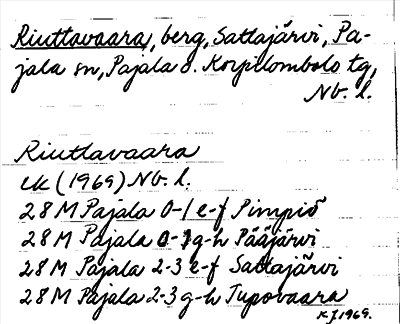 Riuttavaara, berg, Sattajärvi, Pa-
jala sn, Pajala o. Korpilombolo tg,
Nb. l.
Riuttavaara
ek (1969) Nb. l.
28 M Pajala 0-1 e-f Pimpiö
28 M Pajala 0-1 g-h Pääjärvi
28 M Pajala 2-3 e-f Sattajärvi
28 M Pajala 2-3 g-h Tupovaara
KJ 1969.